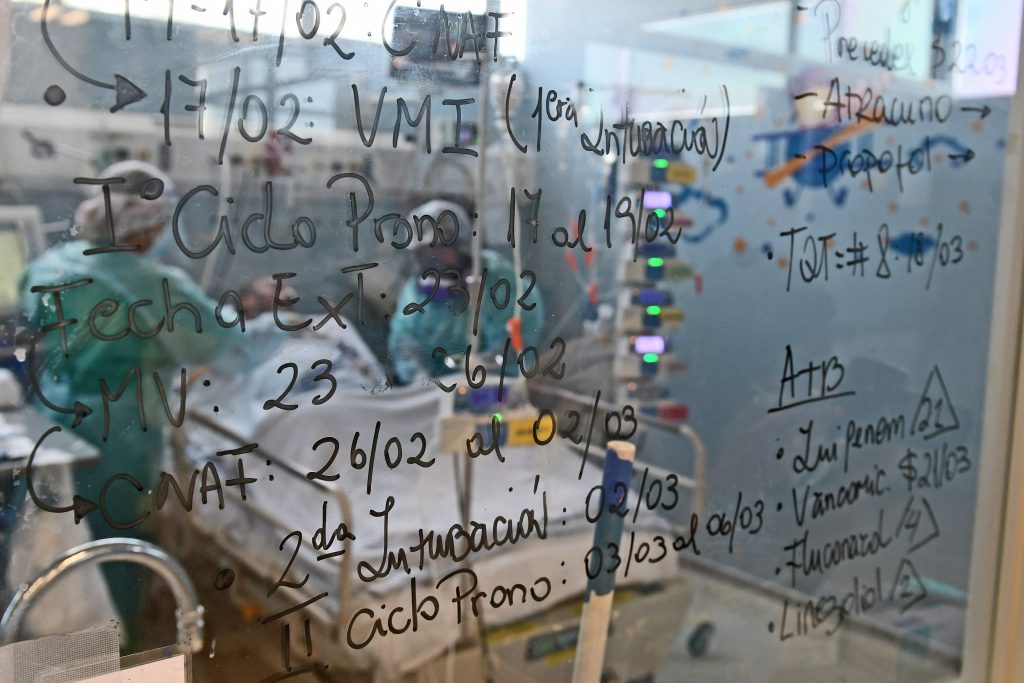 17/02: CNAF
17/02: VMI (1era Intubación)
I° Ciclo Prono: 17 al 19/02
Fecha ExT: 23/02
MV: 23 26/02
CNAF: 26/02 al 02/03
2da Intubación: 02/03
II Ciclo Prono: 03/03 al 06/03
Precedex $22.03
- Atracurio →
- Propofol →
• TQT = # 8 18/03
ATB
• Imipenem /21
• Vancomic. $21/03
• Fluconazol /4
• Linezolid /2